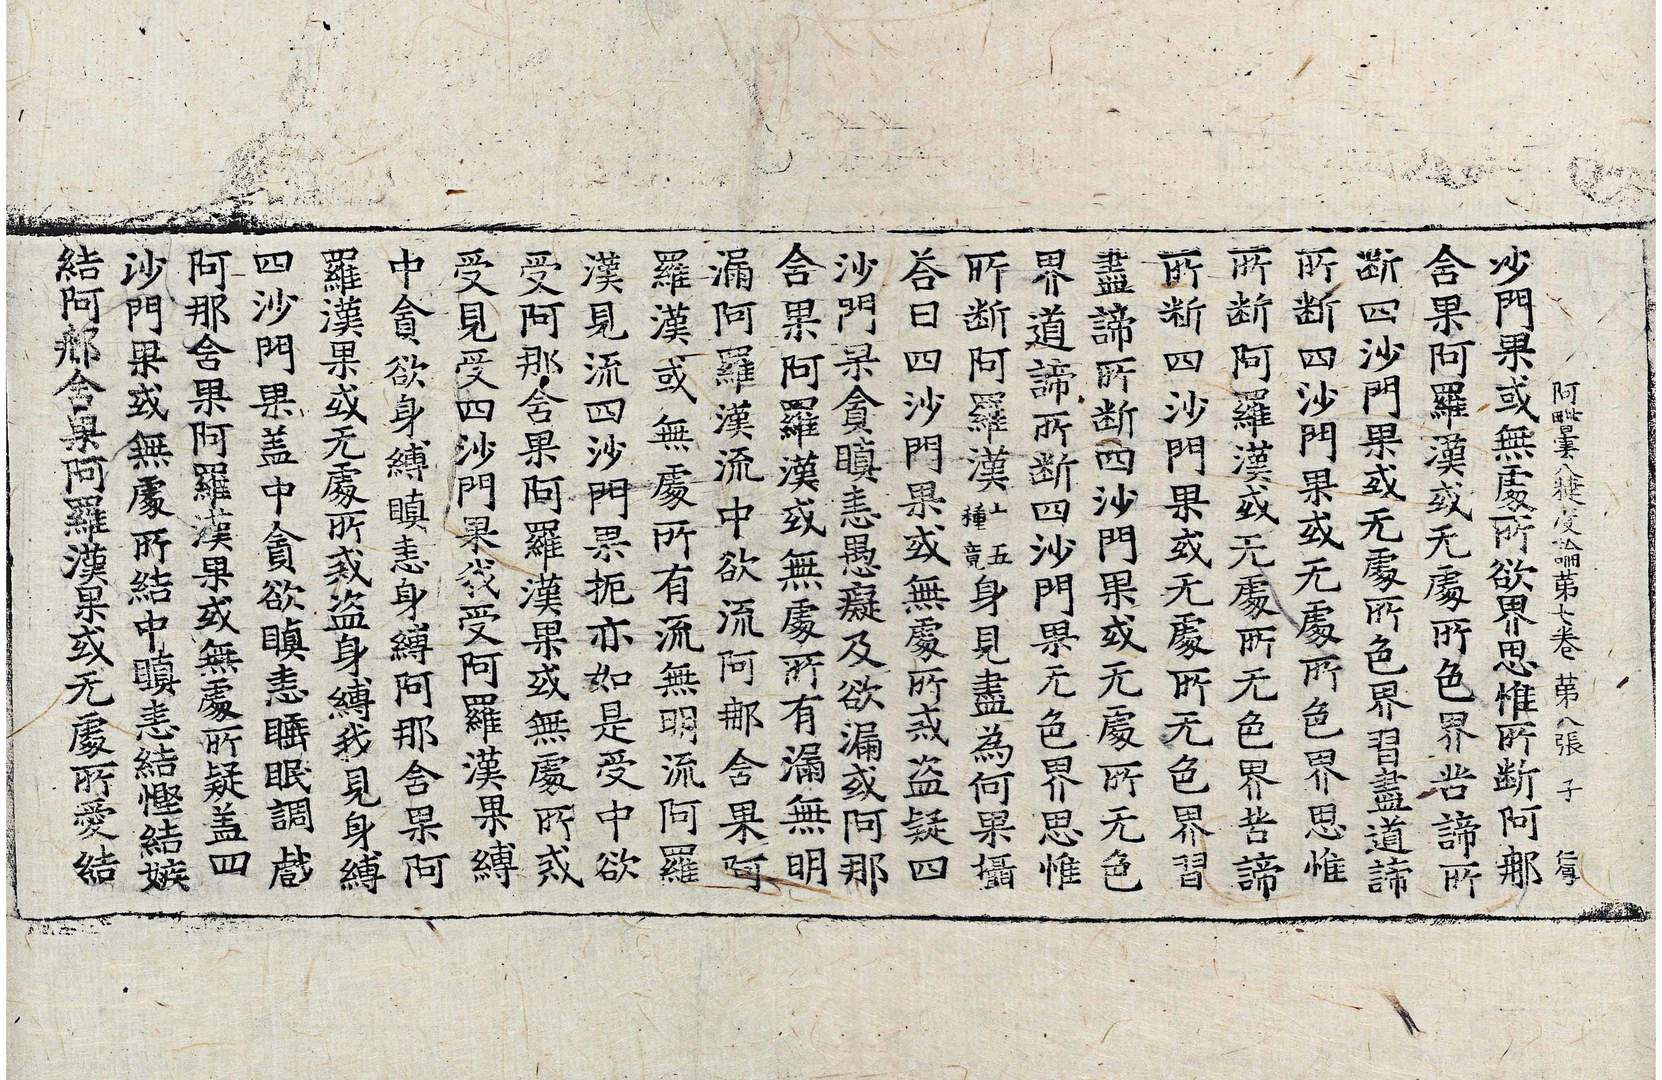 阿毗曇八犍度論第七卷 第八張 子
沙門果或無處所欲界思惟所断阿那
舍果阿羅漢或无處所色界苦諦所
断四沙門果或无處所色界習盡道諦
所断四沙門果或无處所色界思惟
所断阿羅漢或无處所无色界苦諦
所断四沙門果或无處所无色界習
盡諦所断四沙門果或无處所无色
界道諦所断四沙門果无色界思惟
所断阿羅漢上五種竟身見盡為何果攝
荅曰四沙門果或無處所戒盜疑四
沙門果貪瞋恚愚癡及欲漏或阿那
含果阿羅漢或無處所有漏無明
漏阿羅漢流中欲流阿那含果阿
羅漢或無處所有流無明流阿羅
漢見流四沙門果扼亦如是受中欲
受阿那含果阿羅漢果或無處所戒
受見受四沙門果我受阿羅漢果縛
中貪欲身縛瞋恚身縛阿那含果阿
羅漢果或无處所戒盜身縛我見身縛
四沙門果盖中貪欲瞋恚睡眠調戲
阿那含果阿羅漢果或無處所疑盖四
沙門果或無處所結中瞋恚結慳結嫉
結阿那含果阿羅漢果或无處所愛結